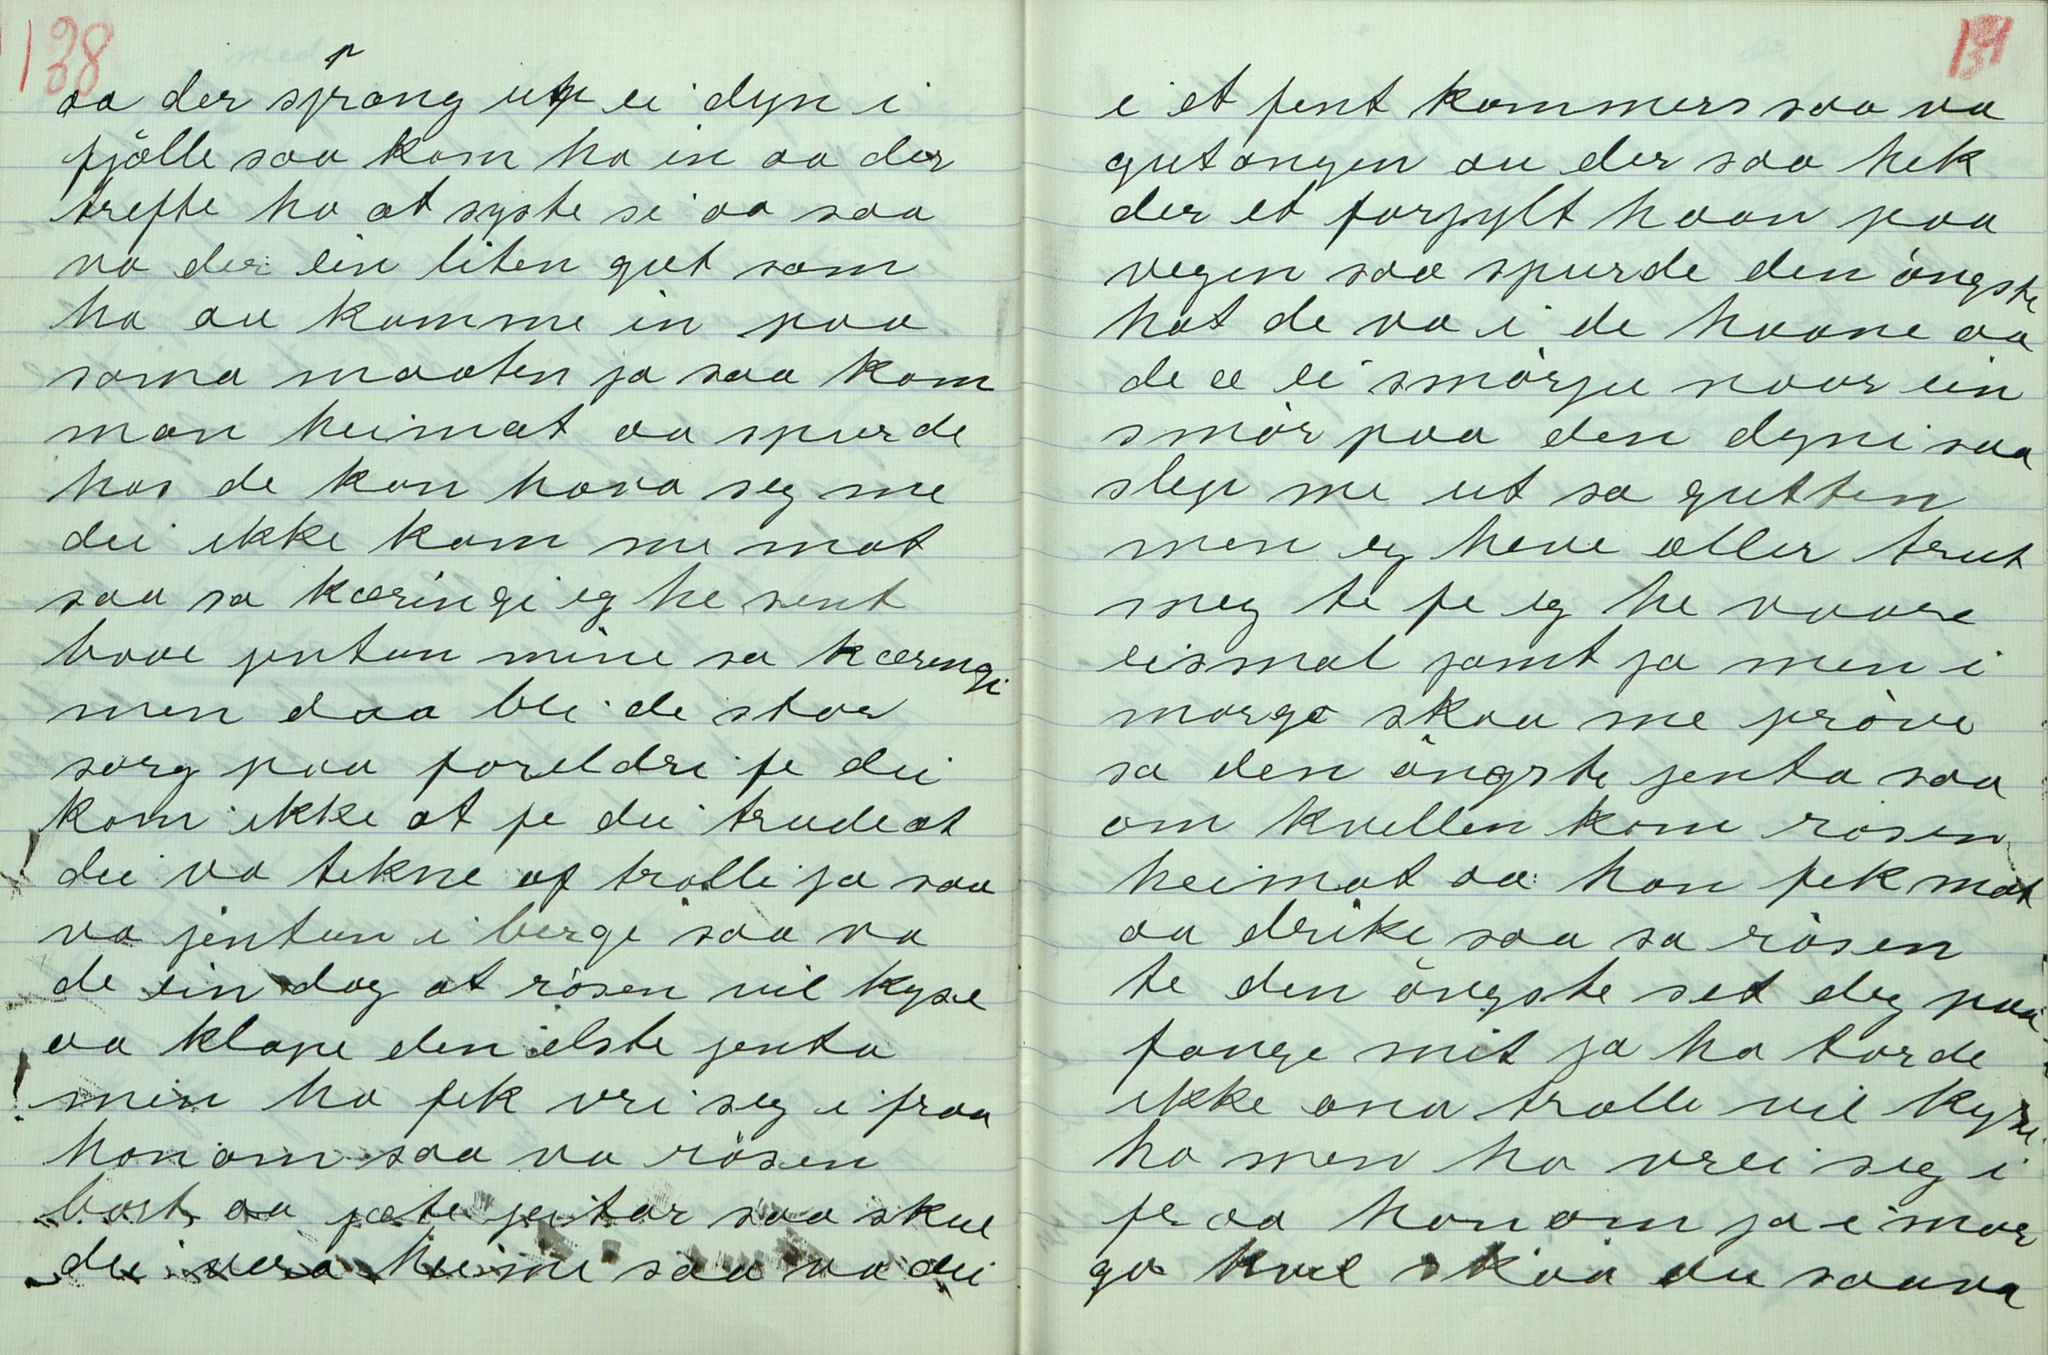 138
aa der sprang up ei dyn i
fjölle saa kom ho in aa der
trefte ho at syste si aa saa
va der ein liten gut som
ha au komme in paa
soma maaten ja saa kom
man heimat aa spurde
hos de kan hava seg me
dei ikke kom me mat
saa sa kæringi eg he sent
baae jentun mine sa kæringi
men daa blei de stor
sorg paa foreldri fe dei
kom ikke at fe dei trude at
dei va tekne af trolli ja saa
va jentun i bergi saa va
de ein dag at rösen vil kyse
aa klape den elste jenta
men ho fek vri seg i fraa
honom saa va rösen
bort aa jæte jeitar saa skul
dei vera heime saa va dei
131
i et fent kammers saa va
gutongen au der saa hek
der et forfylt haan paa
vegen saa spurde den öngste
hot de va i de haane aa
de æ ei smörju naar ein
smör paa den dyni saa
slep me ut sa gutten
men eg heve aller trut
meg te fe eg he vaare
eismal jamt ja men i
morgo skaa me pröve
sa den öngste jenta saa
om kvellen kom rösen
heimat aa han fek mat
aa drike saa sa rösen
te den öngste set deg paa
fange mit ja ho torde
ikke ana trolle vil kyse
ho men ho vrei seg i
fraa honom ja i mor
go kvel skaa du saava